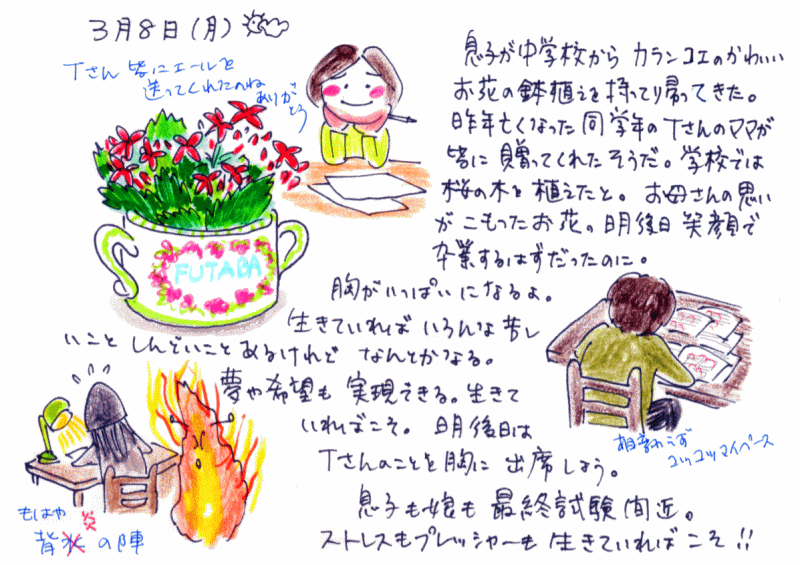 3月8日(月)
Tさん 皆にエールを
送ってくれたのね
ありがとう
息子が中学校から カランコエのかわいい
お花の鉢植えを持って帰ってきた。
昨年亡くなった同学年のTさんのママが
皆に贈ってくれたそうだ。学校では
桜の木を植えたと。お母さんの思い
がこもったお花。明後日笑顔で
卒業するはずだったのに。
FUTABA
胸がいっぱいになるよ。
生きていれば いろんな苦し
いこと しんどいことあるけれど なんとかなる。
夢や希望も 実現できる。生きて
いればこそ。 明後日は
Tさんのことを胸に 出席しよう。
息子も娘も 最終試験間近。
ストレスもプレッシャーも 生きていればこそ!!
相変わらず
コツコツマイペース
もはや 炎
背水の陣